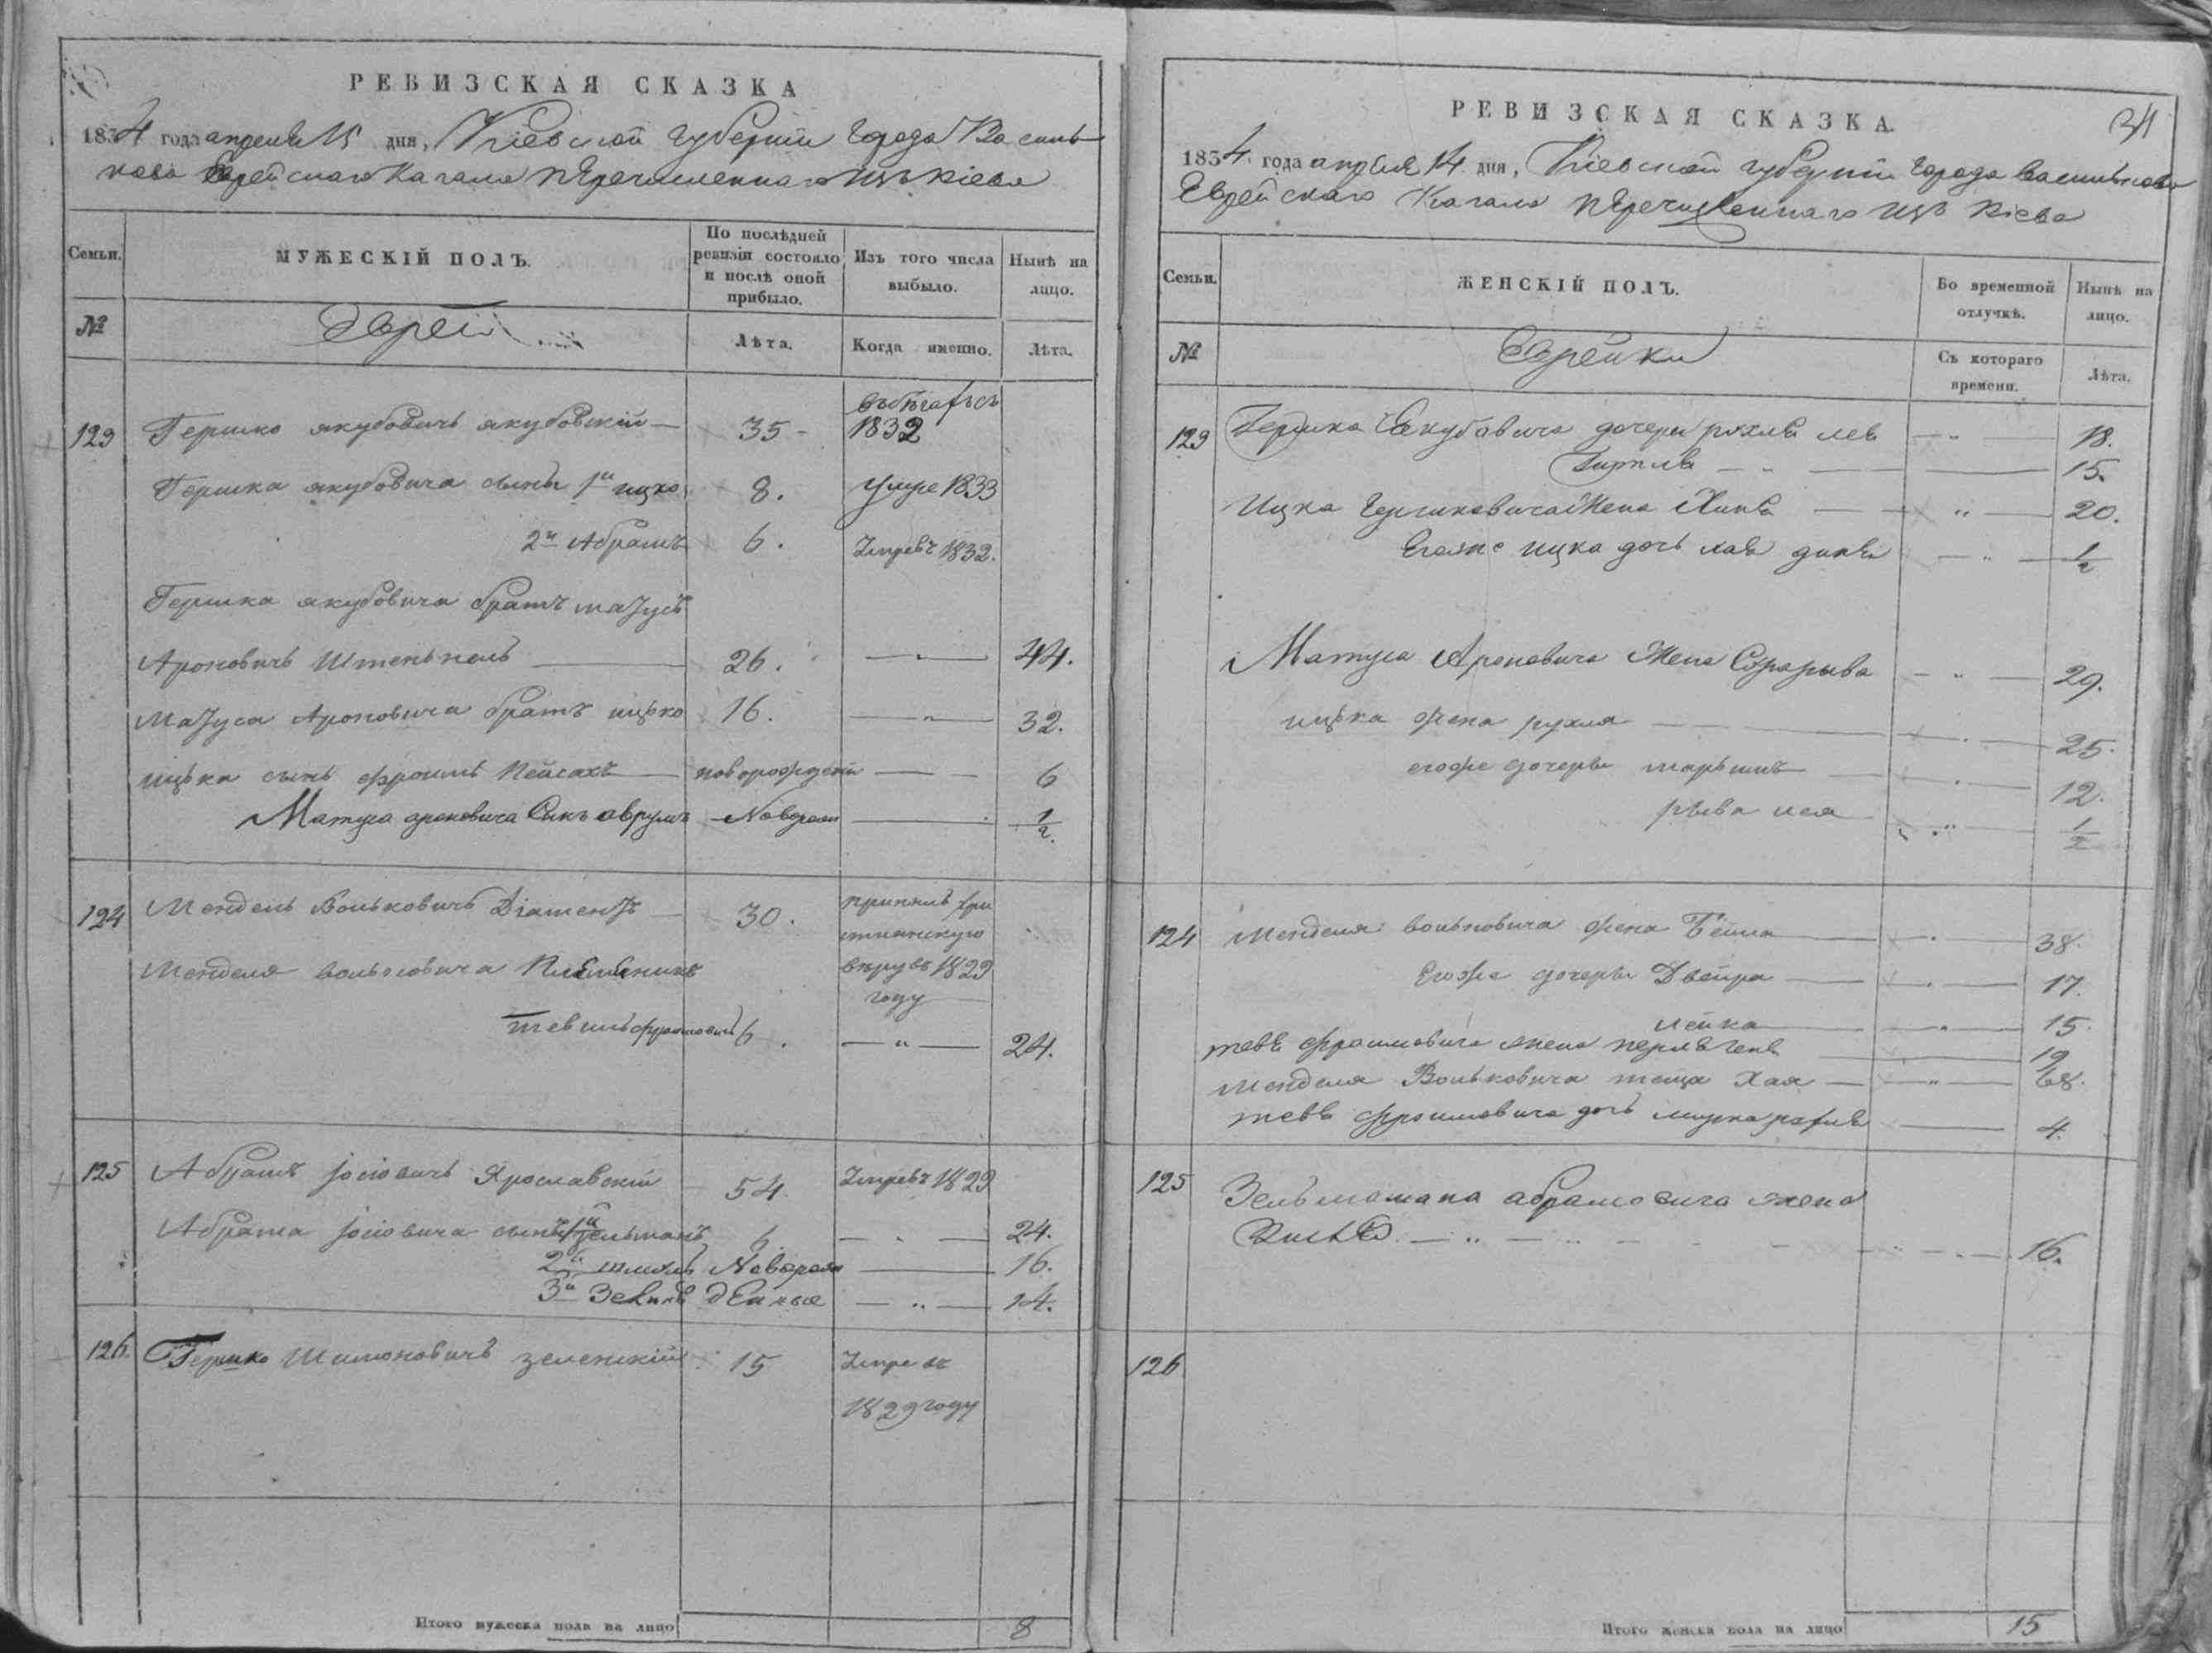 РЕВИЗСКАЯ СКАЗКА
1834 года апреля 15 дня, Кіевской губерніи города Василь
кова Еврейскаго Кагала перечисленнаго изъ Кіева
Семьи.
МУЖЕСКІЙ ПОЛЪ.
По послѣдней ревизіи состояло и послѣ оной прибыло.
Изъ того числа выбыло.
Нынѣ на лицо.
№
Евреи
Лѣта.
Когда именно.
Лѣта.
123 Гершко якубовичь якубовскій 35 1832
Гершка якубовича сыны 1й ицко 8. умре 1833
2й Абрамъ 6. Умре въ 1832.
Гершка якубовича братъ матусъ
Ароновичь Штенпель 26. 44.
Матуса Ароновича братъ ицько 16. 32.
ицька сынъ фроимъ Пейсахъ новорожден 6
Матуса ароновича Сынъ аврумъ Новорож 1/2
124 Мендель Вольковичь Діаментъ 30. принялъ хри
стианскую
Менделя вольковича Племеникъ веру въ 1829
году
тевель фроимовичь 6. 24.
125 Абрамъ Іосіовичь Ярославскій 54 Умре въ 1829
Абрама Іосіовича сынъ 1й Зельманъ 6 24.
2й Новорож 16.
3й 14.
126. Гершко Шимоновичъ зеленскій 15 Умре въ
1829 году
Итого мужеска пола на лицо 8
РЕВИЗСКАЯ СКАЗКА.
34
1834 года апреля 14 дня, Кіевской губерніи города Василькова
Еврейскаго Кагала перечисленнаго изъ Кіева
Семьи.
ЖЕНСКІЙ ПОЛЪ.
Во временной отлучкѣ.
Нынѣ на лицо.
№
Еврейки
Съ котораго времени.
Лѣта.
123 Гершка Якубовича дочери рохля лея 18.
15.
Ицка Гершковича Жена Хина 20.
Егоже ицка дочь хая 1/2
Матуса Ароновича Жена 29.
ицька жена рухля 25.
егоже дочери марьимъ 12.
рыва лея 1/2
124 Менделя вольковича жена Бейла 38.
Егоже дочери Двейра 17.
лейка 15.
тевеля фроимовича жена 19
Менделя Вольковича теща Хая 68.
тевеля фроимовича дочь 4.
125 Зельмамана абрамовича жена
16.
126
Итого женска пола на лицо 15